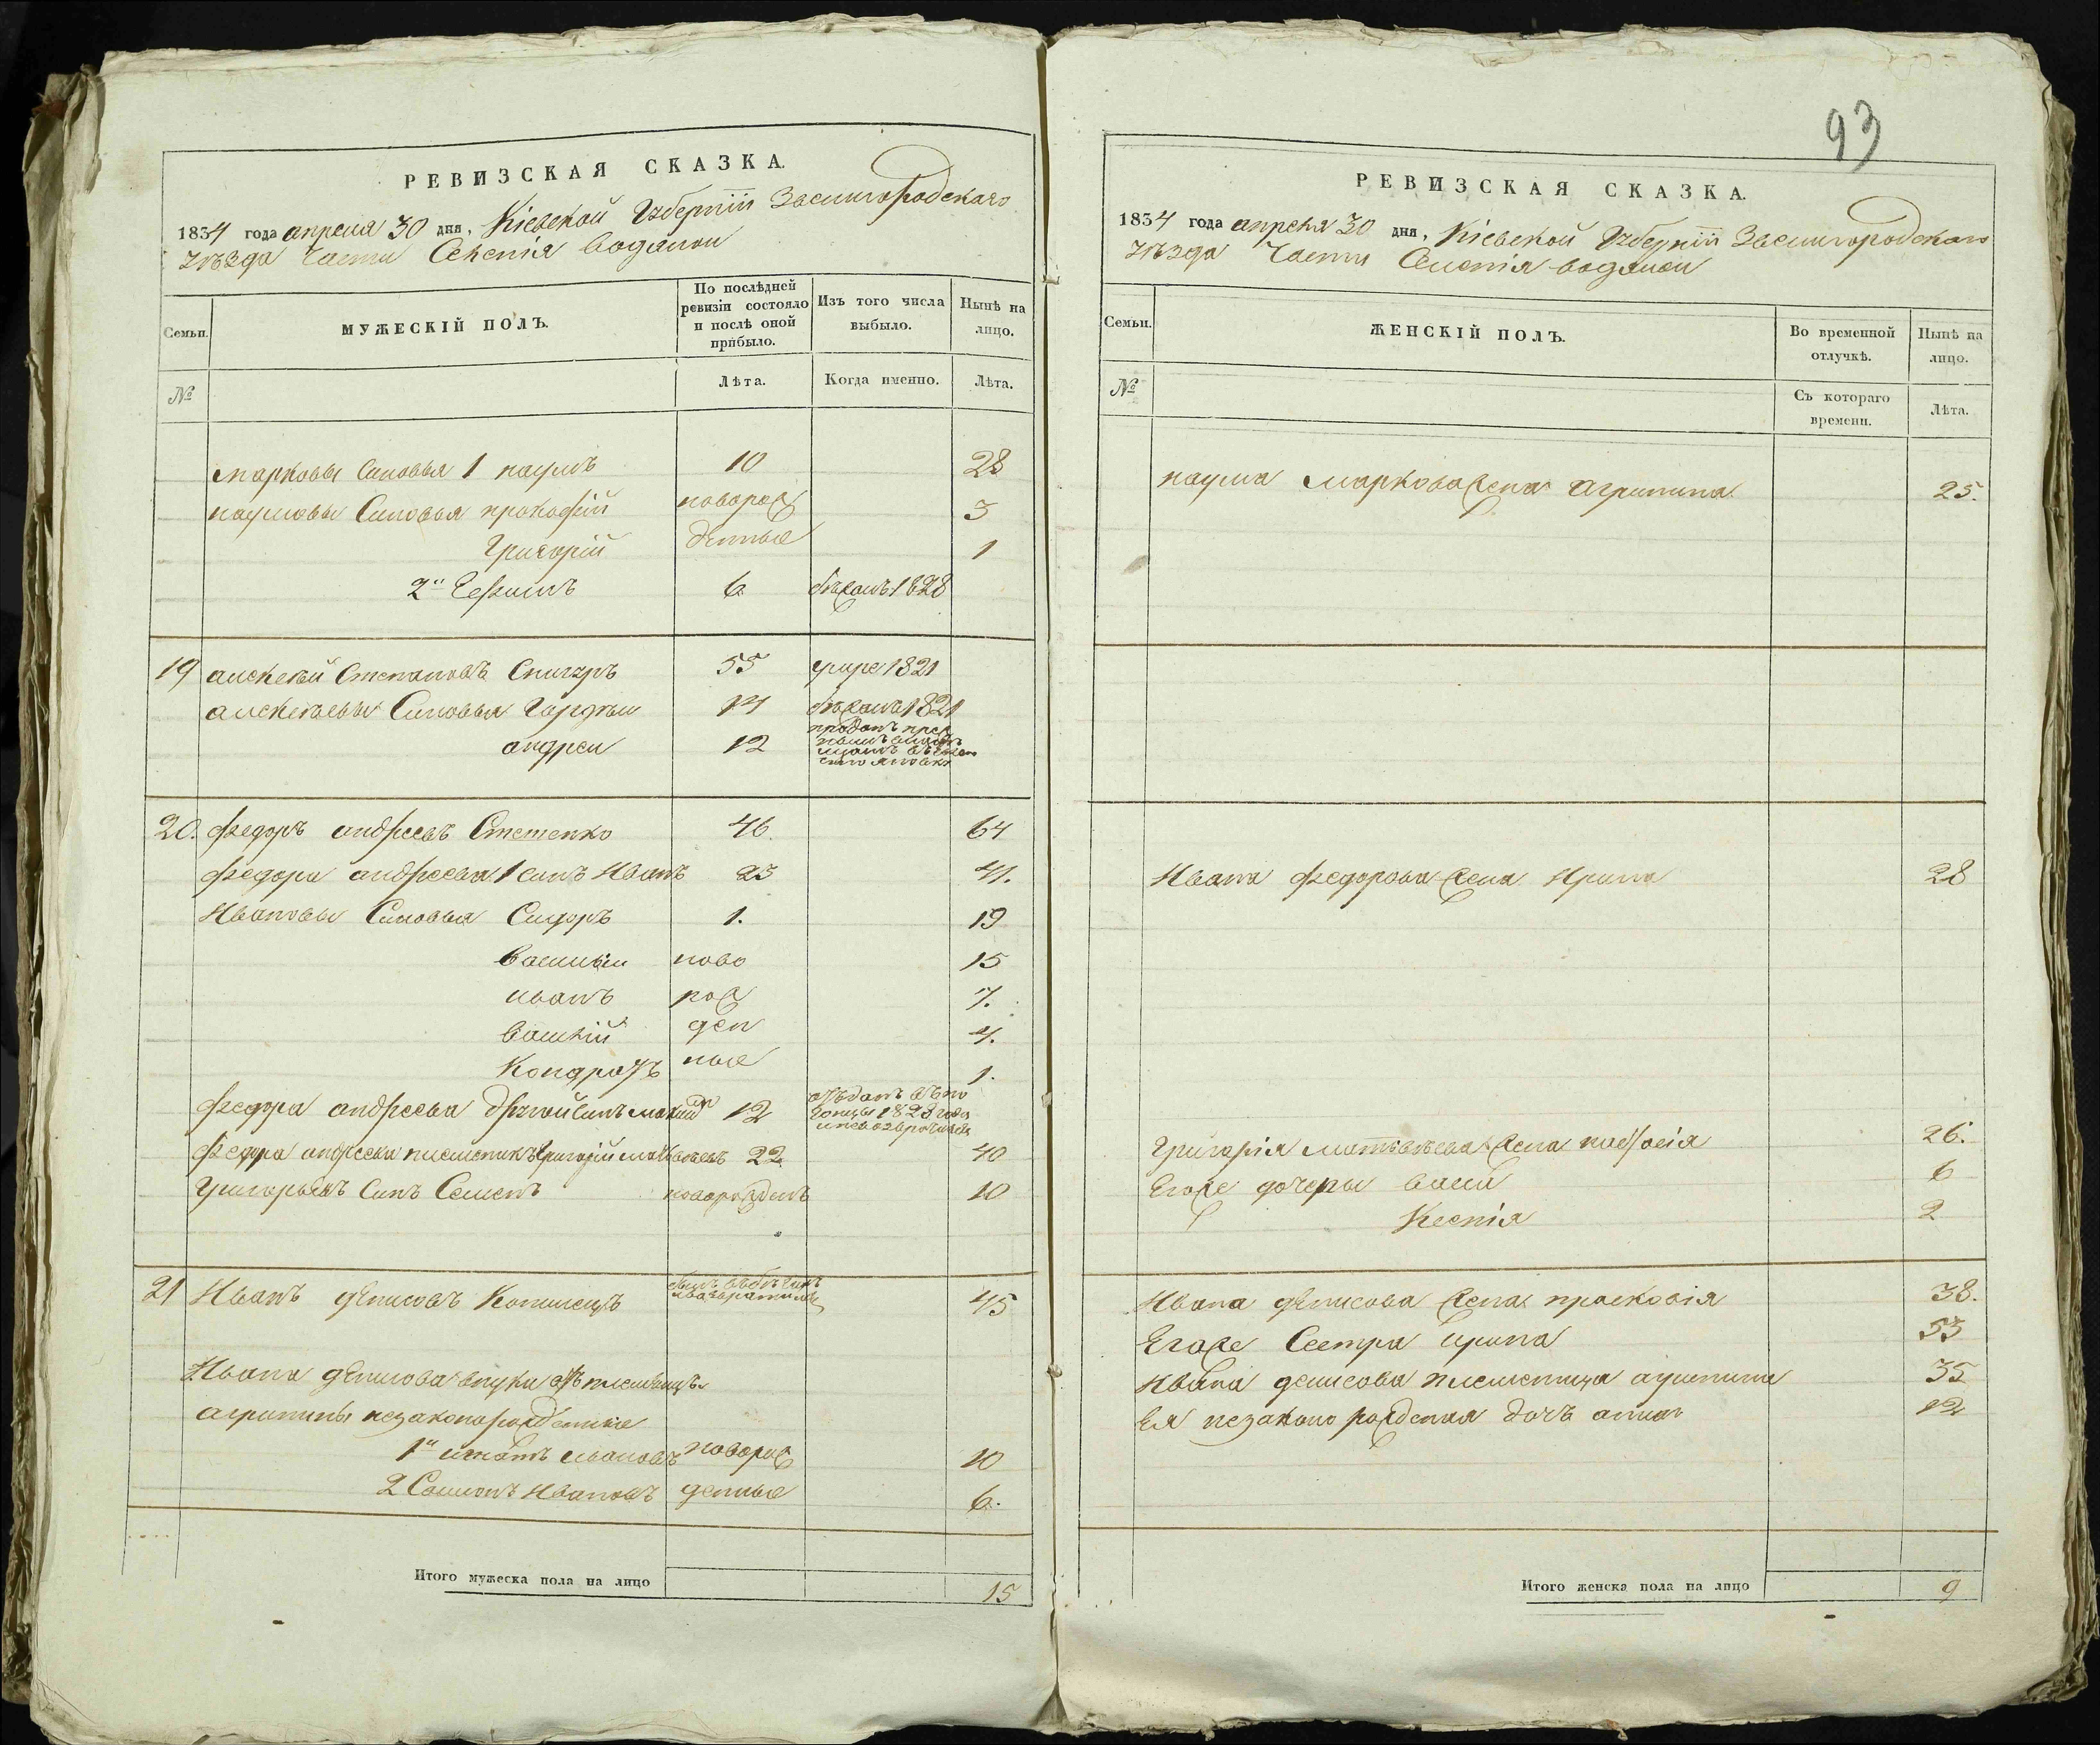 РЕВИЗСКАЯ СКАЗКА.
1834 года апреля 30 дня, Кіевской Губерніи Звенигородскаго
уѣзда Части Селенія Водяной
Семьи.
МУЖЕСКІЙ ПОЛЪ.
По послѣдней
ревизіи состояло
и послѣ оной
прибыло.
Изъ того числа
выбыло.
Нынѣ на
лицо.
№
Лѣта.
Когда именно.
Лѣта.
марковы синовья 1 наумъ 10 28
наумовы Синовья прокофій новорож 3
Григорій денные 1
2й Ефимъ 6 бѣжалъ 1828
19 алексѣй Степановъ Снигуръ 55 умре 1821
алексѣевы Синовья Гордѣи 14 бѣжалъ 1821
андреи 12 проданъ
20. федоръ андреевъ Стетенко 46. 64
федора андреева 1 синъ Иванъ 23 41.
Ивановы Синовья Сидоръ 1. 19
василій ново 15
иванъ рож 7.
василій ден 4.
Кондратъ ные 1.
федора андреева другой синъ 12 1828 года
федора андреева племянникъ Григорій матвѣевъ 22 40
Григорьевъ Синъ Семенъ новорожденъ 10
21 Иванъ денисовъ 45
Ивана денисова внуки отъ племяницы
агрипины незаконорожденные
1й игнатъ ивановъ новорож 10
2 Самсонъ Ивановъ денные 6.
Итого мужеска пола на лицо 15
93
РЕВИЗСКАЯ СКАЗКА.
1834 года апреля 30 дня, Кіевской Губерніи Звенигородскаго
уѣзда Части Селенія водяной
Семьи.
ЖЕНСКІЙ ПОЛЪ.
Во временной
отлучкѣ.
Нынѣ на
лицо.
№
Съ котораго
времени.
Лѣта.
наума маркова жена агрипина 25.
Ивана федорова жена Ирина 28
Григорія матвѣева жена 26.
Егоже дочеры 6
Ксенія 2
Ивана денисова жена прасковія 38.
Егоже Сестра ирина 53
Ивана денисова племеница 35
Ея незаконо рожденая дочъ анна 12
Итого женска пола на лицо 9